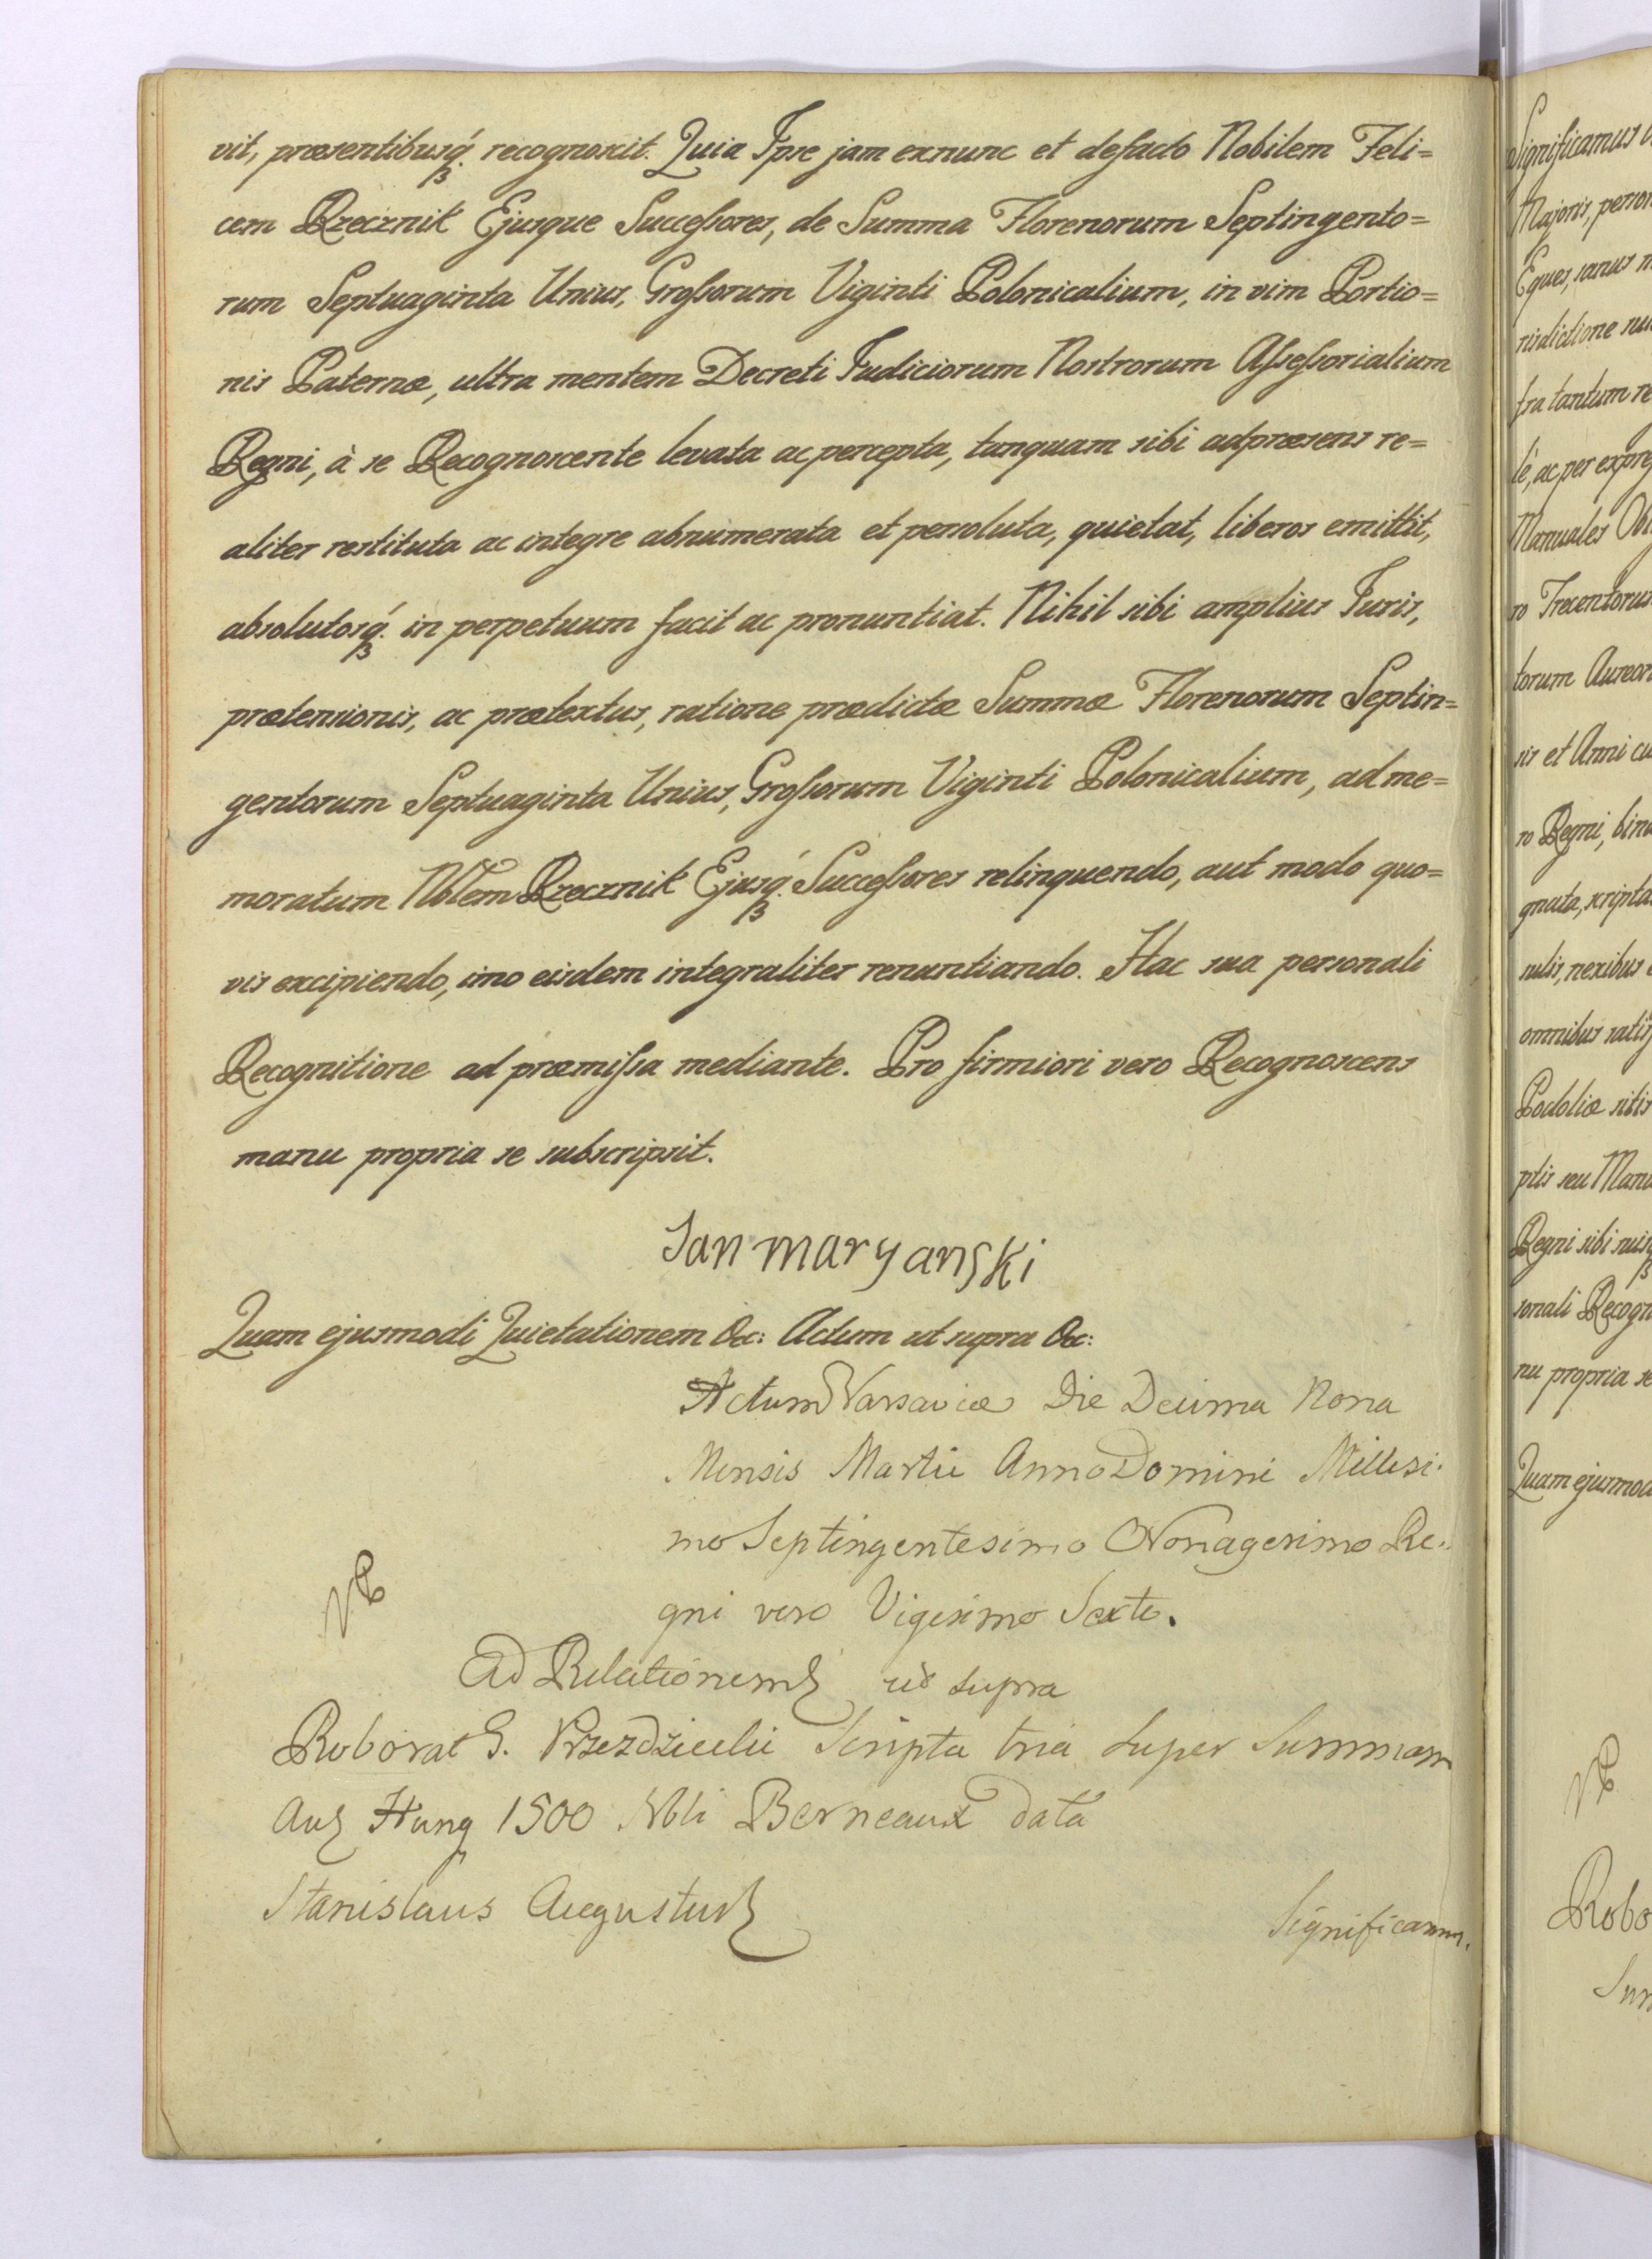 vit, præsentibusq́ʒ recognoscit. Quia Ipse jam exnunc et defacto Nobilem Feli=
cem Rzecznik Ejusque Succeſsores, de Summa Florenorum Septingento=
rum Septuaginta Unius, Groſsorum Viginti Polonicalium, in vim Portio=
nis Paternæ, ultra mentem Decreti Judiciorum Nostrorum Aſseſsorialium
Regni, à se Recognoscente levata ac percepta, tanquam sibi adpræsens re=
aliter restituta ac integre abnumerata et persoluta, quietat, liberos emittit,
absolutosq́ʒ in perpetuum facit ac pronuntiat. Nihil sibi amplius Juris,
prætensionis, ac prætextus, ratione prædictæ Summæ Florenorum Septin=
gentorum Septuaginta Unius, Groſsorum Viginti Polonicalium, ad me=
moratum Nblem Rzecznik Ejusq́ʒ Succeſsores relinquendo, aut modo quo=
vis excipiendo, imo eisdem integraliter renuntiando. Hac sua personali
Recognitione ad præmiſsa mediante. Pro firmiori vero Recognoscens
manu propria se subscripsit.
Jan maryanski
Quam ejusmodi Quietationem &c: Actum ut supra &c:
Actum Varsaviæ Die Decima Nona
Mensis Martii Anno Domini Millesi-
mo Septingentesimo Nonagesimo Re-
gni vero Vigesimo Sexto.
Ad Relationem ut supra
Roborat G. Przezdziecki Scripta tria super Summam
Aur Hung 1500 Nbli Berneaux data
Stanislaus Augustus
Significamus
Significamus
Majoris, person
Eques, sanus m
risdictione su
fra tantum re
le, ac per expreſ
Manuales Ob
ro Trecentorum
torum Aureor
sis et Anni cu
ro Regni, bin
gnata, scripta
sulis, nexibus
omnibus satis
Podoliæ sitis
ptis seu Manu
Regni sibi suisq
sonali Recogn
nu propria se
Quam ejusmod
Robo
Sum